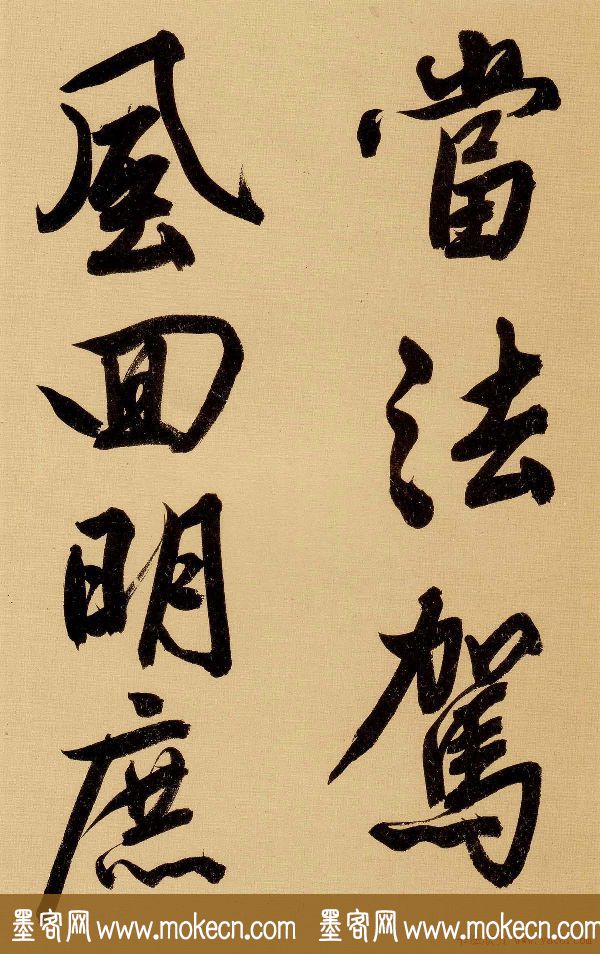 當法駕
風回明庶
墨客网 www.mokecn.com 墨客网 www.mokecn.com